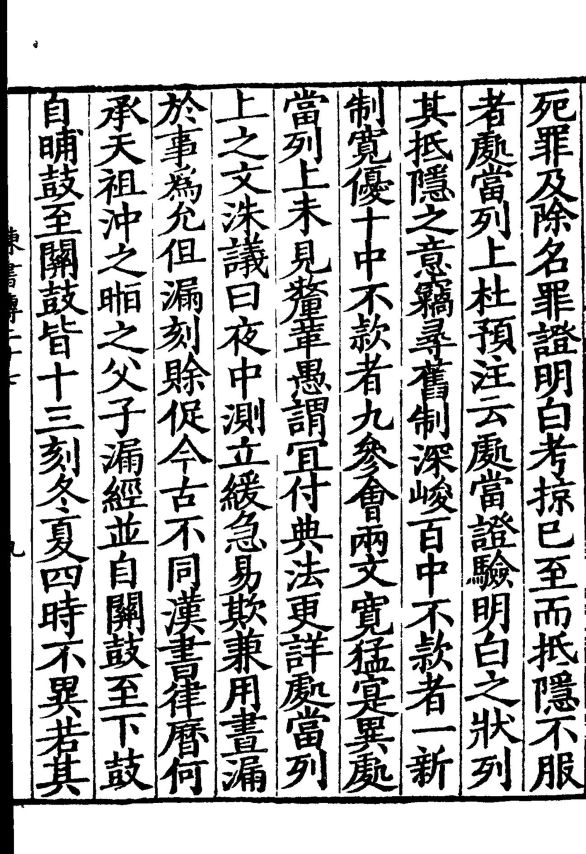 死罪及除名罪證明白考掠已至而抵隱不服
者處當列上杜預注云處當證驗明白之狀列
其抵隱之意竊尋舊制深峻百中不款者一新
制寬優十中不款者九參會兩文寬猛寔異處
當列上未見釐革愚謂宜付典法更詳處當列
上之文洙議曰夜中測立緩急易欺兼用晝漏
於事爲允但漏刻賖促今古不同漢書律曆何
承天祖沖之暅之父子漏經並自關鼓至下鼓
自晡鼓至關鼓皆十三刻冬夏四時不異若其
陳書傳二十七
九